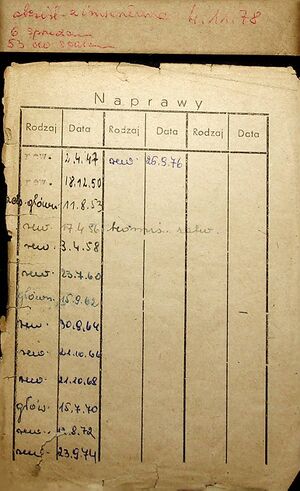 4.11.78
6
53
Naprawy
Rodzaj Data Rodzaj Data Rodzaj Data
rew. 2.4.47 rew. 26.9.76
rew. 18.12.50
główn. 11.8.53
rew.
rew. 3.4.58
rew. 23.7.60
główn. 15.9.62
rew. 30.9.64
rew. 21.10.66
rew. 21.10.68
głów. 15.7.70
rew. 8.72
rew. 23.9.74